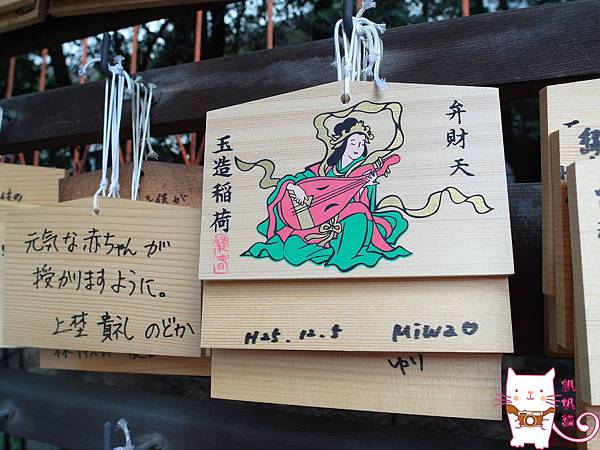 弁財天
玉造稲荷
元気な赤ちゃんが
授かりますように。
上埜 貴礼 のどか
H25.12.5 Miwa
ゆり